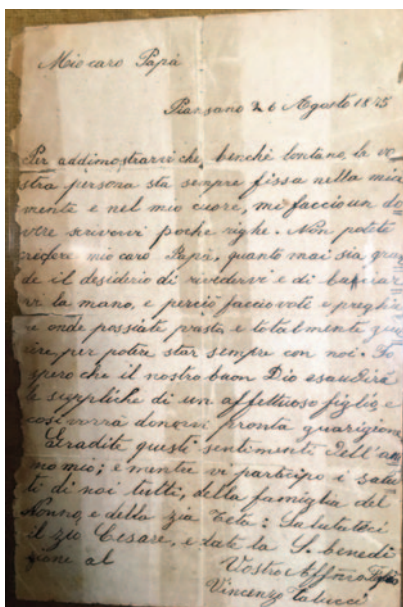 Mio caro Papà
Piansano 26 Agosto 1875
Per addimostrarvi che, benchè lontano, la vo
stra persona sta sempre fissa nella mia
mente e nel mio cuore, mi faccio un do
vere scrivervi poche righe. Non potete
credere mio caro Papà, quanto mai sia gran
de il desiderio di rivedervi e di baciar
vi la mano, e perciò faccio voti e preghie
re onde possiate presto e totalmente gua
rire, per potere star sempre con noi. Io
spero che il nostro buon Dio esaudirà
le suppliche di un affettuoso figlio, e
così vorrà donarvi pronta guarigione
Gradite questi sentimenti dell'ani
mo mio; e mentre vi partecipo i salu
ti di noi tutti, della famiglia del
Nonno, e della zia Teta: Salutateci
il zio Cesare, e date la S. benedi
zione al Vostro Affmo Figlio
Vincenzo